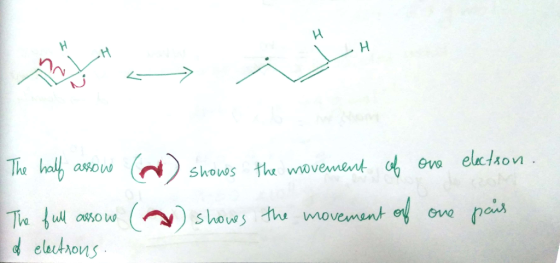 H
H
H
H
The half arrow ( ) shows the movement of one electron.
The full arrow ( ) shows the movement of one pair
of electrons.